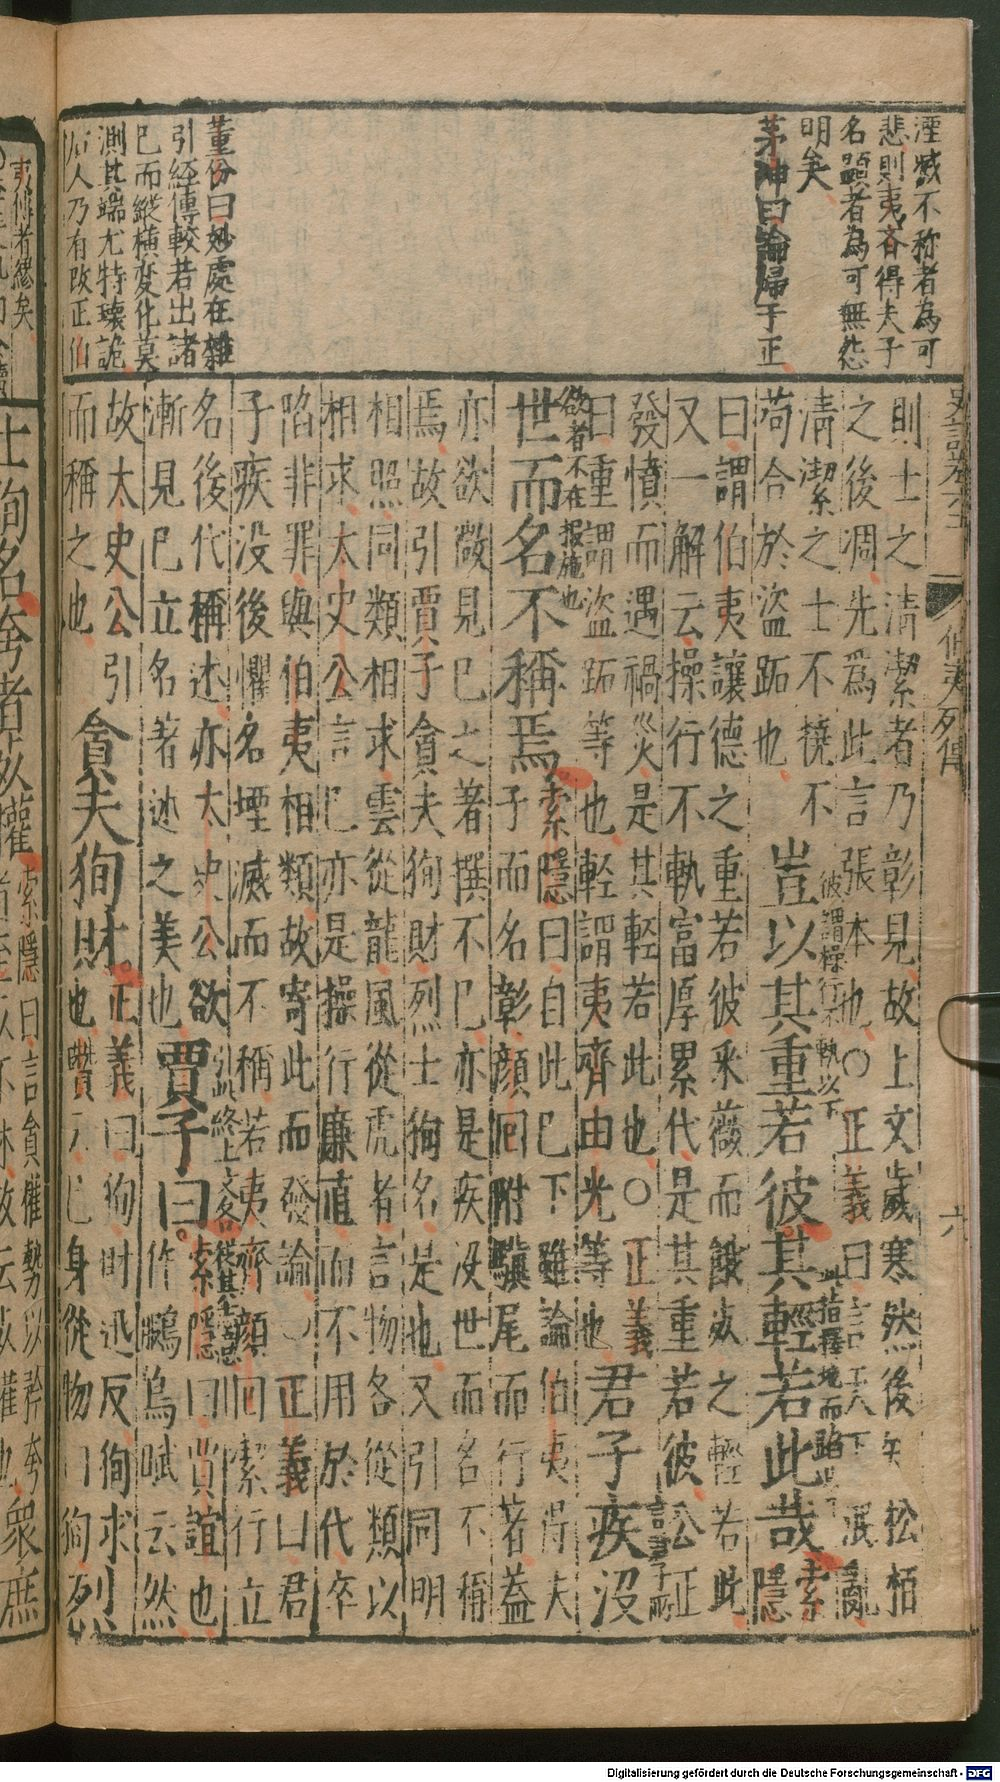 湮滅不称者為可
悲則夷齊得夫子
名顯者為可無怨
明矣
茅坤曰論歸于正
董份曰妙處在雜
引經傳較若出諸
已而縱橫変化莫
測其端尤特瓌詭
后人乃有改正伯
伯夷列傳
六
則士之清潔者乃彰見故上文歲寒然後知松栢
之後凋先爲此言張本也○正義曰言天下泯亂
清潔之士不撓不
苟合於盜跖也
彼謂操行不軌以下
豈以其重若彼其輕若此哉
此指擇地而蹈以下
索
隱
曰謂伯夷讓德之重若彼采薇而餓死之輕若此
又一解云操行不軌富厚累代是其重若彼公正
發憤而遇禍災是其輕若此也○正義
曰重謂盜跖等也輕謂夷齊由光等也
君子疾沒
欲者不在报施也
世而名不稱焉
索隱曰自此已下雖論伯夷得夫
子而名彰顏回附驥尾而行著蓋
亦欲微見已之著撰不已亦是疾没世而名不稱
焉故引賈子貪夫狥財烈士狥名是也又引同明
相照同類相求雲從龍風從虎者言物各從類以
相求太史公言已亦是操行廉直而不用於代卒
陷非罪與伯夷相類故寄此而發論○正義曰君
子疾没後懼名堙滅而不稱若夷齊顏回潔行立
名後代稱述亦太史公欲
漸見已立名著述之美也
此終上文各從其志意
賈子曰
索隱曰賈誼也
作鵩鳥賦云然
故太史公引
而稱之也
貪夫狥財
正義曰狥財迅反狥求
也瓚云已身從物曰狥
烈
夷傳者繆矣
士狥名夸者死權
索隱曰言貪權勢以矜夸
衆庶
Digitalisierung gefördert durch die Deutsche Forschungsgemeinschaft - DFG